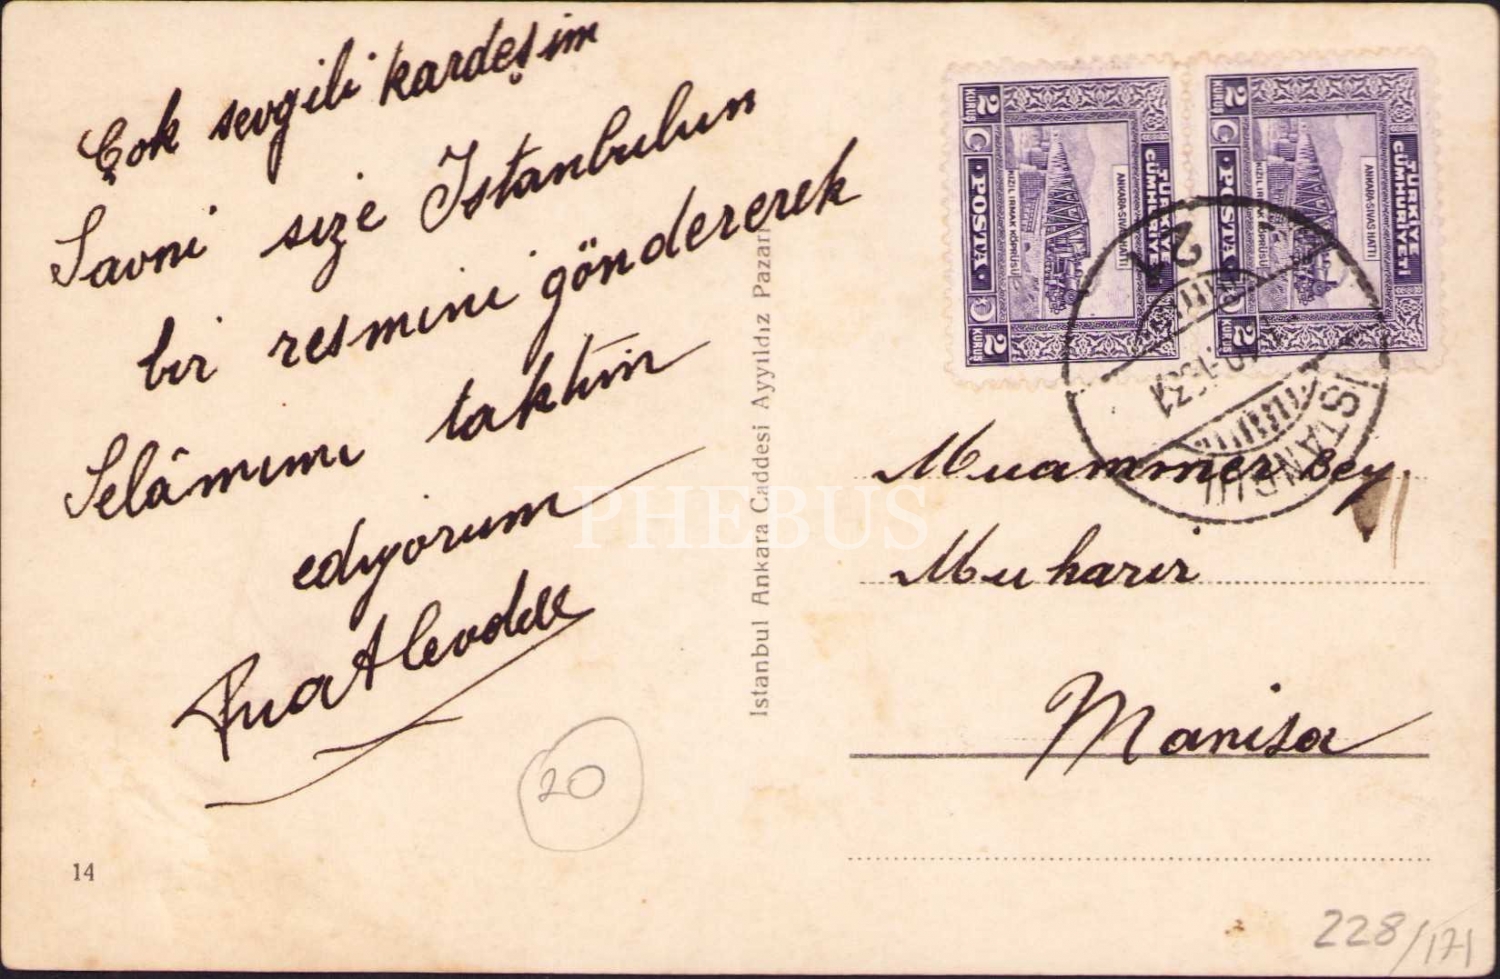 Çok sevgili kardeşim
Savni size İstanbulun
bir resmini göndererek
Selâmımı taktim
ediyorum
Fuat Cevdet
20
14
Istanbul Ankara Caddesi Ayyıldız Pazarı
2 KURUŞ
POSTA
2 KURUŞ
KIZIL IRMAK KÖPRÜSÜ
ANKARA-SIVAS HATTI
TÜRKİYE
CÜMHURİYETİ
2 KURUŞ
POSTA
2 KURUŞ
ANKARA-SIVAS HATTI
TÜRKİYE
CÜMHURİYETİ
ISTANBUL
Muammer Bey
Muharir
Manisa
228/171
PHEBUS